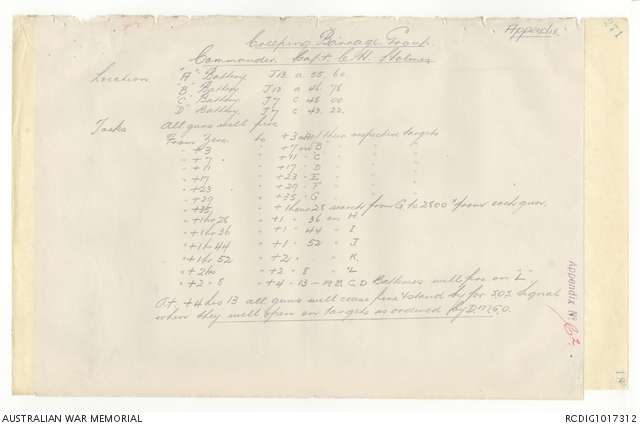 Appendix
Creeping Barrage Group
Commander Capt. C. H. Holmes
Location "A" Battery J13 a 55. 60.
"B" Battery J13 a 46 78
"C" Battery J7 c 46 00
"D" Battery J7 c 43. 22.
Tasks All guns will fire
From Zero to +3 on A / their respective targets
" +3 " +7 on B " "
" +7 " +11 - C " "
" +11 " +17 - D " "
" +17 " +23 - E " "
" +23 " +29 - F " "
" +29 " +35 - G " "
" +35 " +1 hour 28 search from G to 2800x from each gun.
" +1 hr 28 " +1 - 36 on H
" +1 hr 36 " +1 - 44 - I
" +1 hr 44 " +1 - 52 - J
" +1 hr 52 " +2 - K
" +2 hrs " +2 - 8 - "L
" +2 - 8 " +4 - 13 - A B. C. D Batteries will fire on "L"
At +4 hrs 13 all guns will cease fire & stand by for S.O.S. signal
when they will open on targets as ordered by D.M.G.O.
Appendix No
AUSTRALIAN WAR MEMORIAL
RCDIG1017312